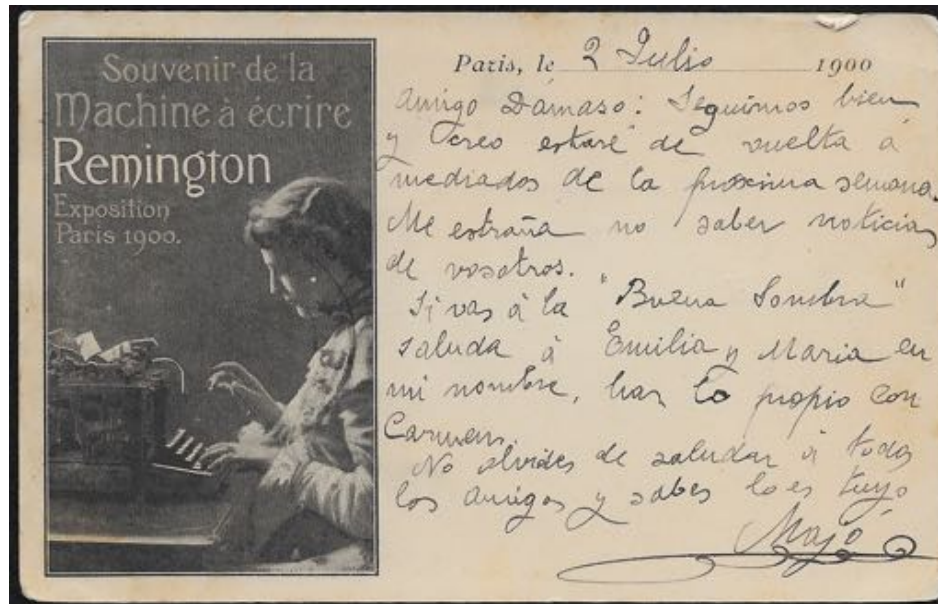 Souvenir de la
Machine à écrire
Remington
Exposition
Paris 1900.
Paris, le 2 Julio 1900
Amigo Dámaso: Seguimos bien
y Creo estaré de vuelta á
mediados de la próxima semana.
Me estraña no saber noticias
de vosotros.
Si vas á la "Buena Sombra"
saluda á Emilia y Maria en
mi nombre, haz lo propio con
Carmen.
No olvides de saludar á todos
los amigos y sabes lo es tuyo
Majó